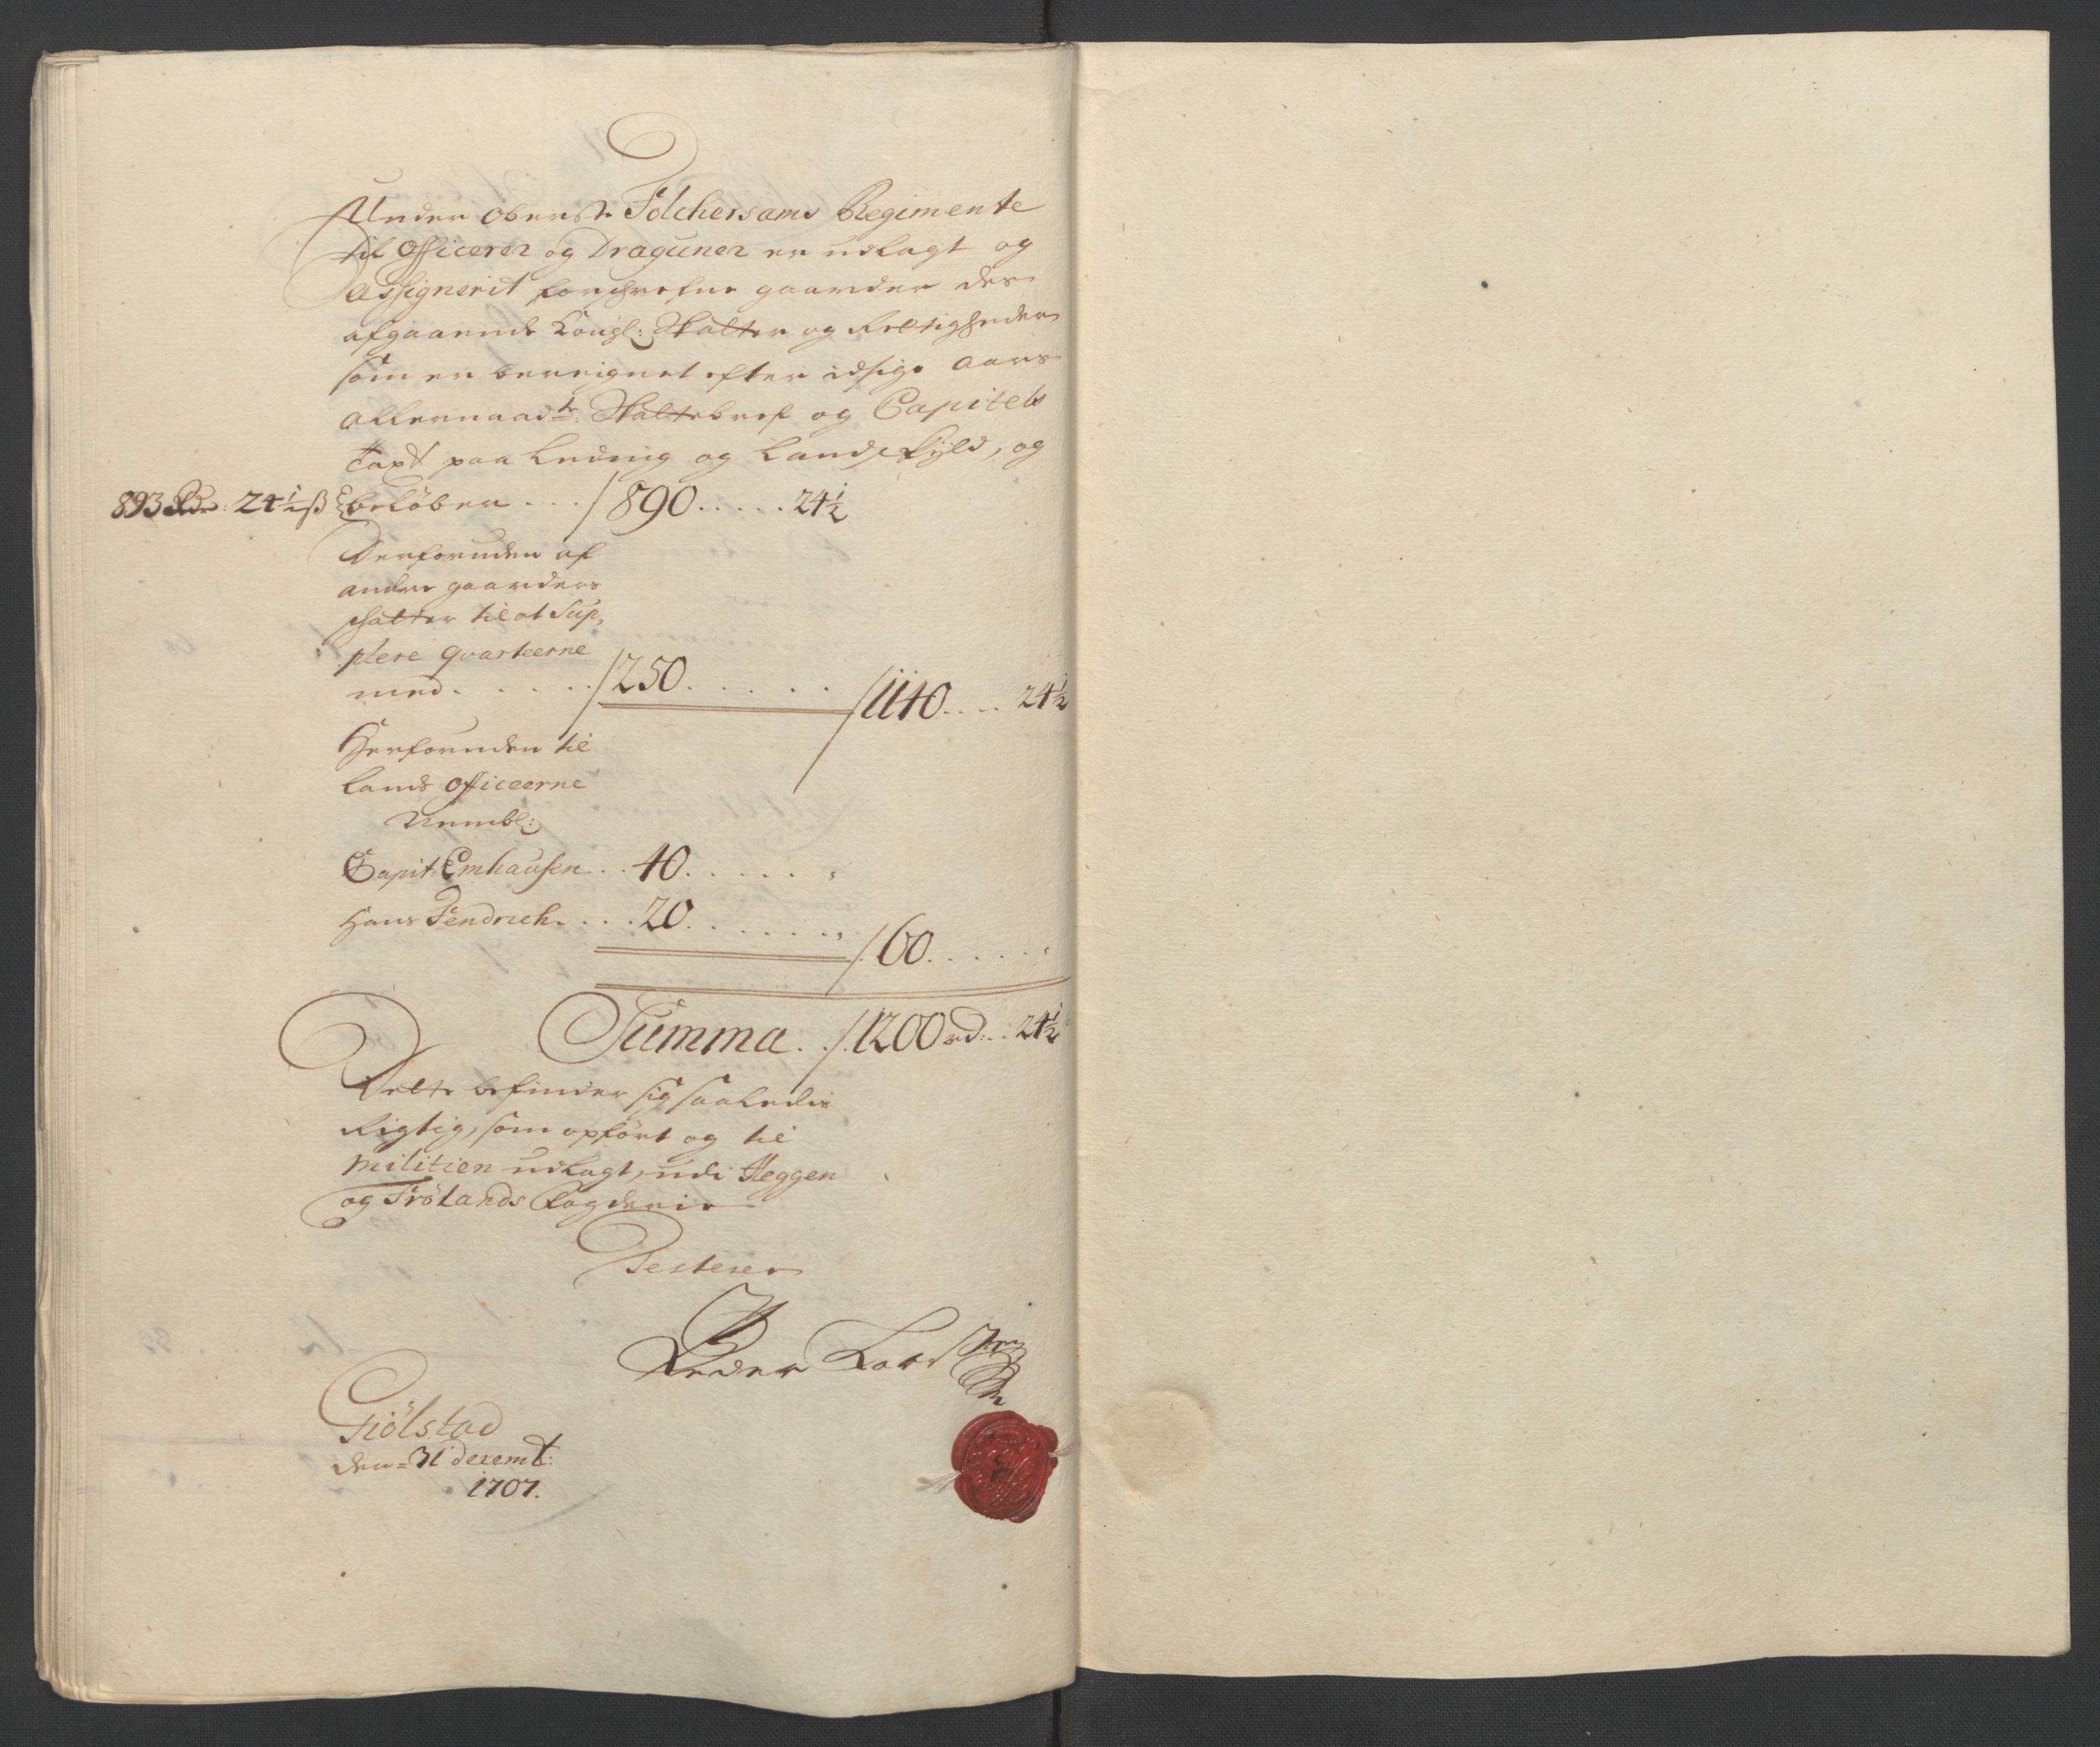 Under Oberste Folchersams Regimente
til Officerer og Draguner er udlagt og
Assignerit forschrefne gaarder des
afgaaende Kongl: Skatter og Rettigheder
som er bereignet efter idsige Aars
allernaadte: Skattebref og Capitels
taxt paa Leding og Landskyld, og
893 Rdr: 24½ ß beløber . . . 890 . . . . . 24½
Derforuden af
andre gaarders
skatter til at Sup,
plere qvarteerne
med . . . . . 250 . . . . . . 1140 . . . . 24½
Herforuden til
Lands Officeerne
Nembl:
Capit: Emhausen . . 40 . . . . . . "
Hans Fendrich . . . . 20 . . . . . . . "
60 . . . . . "
Summa . . 1200 rd: . : 24½
Dette befinder sig saaledis
Rigtig, som opført og til
Militien udlagt, udi Heggen
og Frølands Fogderie
Testerer
Peder
Giølstad
den = 31 decemb:
1707.